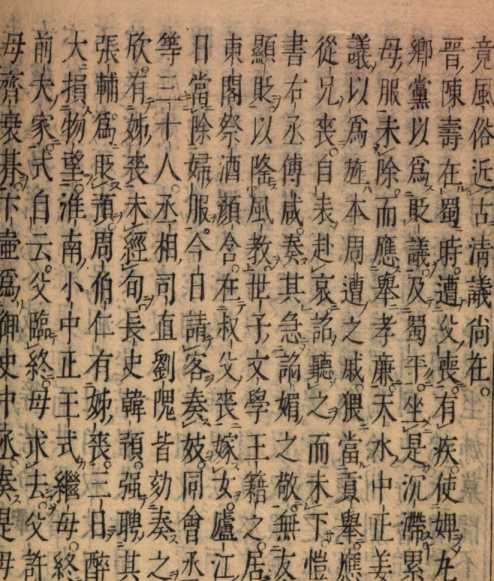 竟風俗近古清議尚在。
晉陳壽在蜀時遭父喪有疾使婢丸
鄉黨以爲貶議及蜀平坐是沉滯累
母服未除而應舉孝廉天水中正姜
議以爲旌本周遭之戚猥當貢舉應
從兄喪自表赴哀詔聽之而未下愷
書右丞傅咸奏其急謟媚之敬無友
顯貶以隆風教世子文學王籍之居
東閤祭酒顏含在叔父喪嫁女廬江
日當除婦服今日請客奏妓同會丞
等三十人丞相司直劉隗皆劾奏之
欣有姊喪未經旬長史韓預强聘其
張輔爲貶預周伯仁有姊喪三日醉
大損物望淮南小中正王式繼母終
前夫家式自云父臨終母求去父許
母齊衰朞卞壼爲御史中丞奏是母